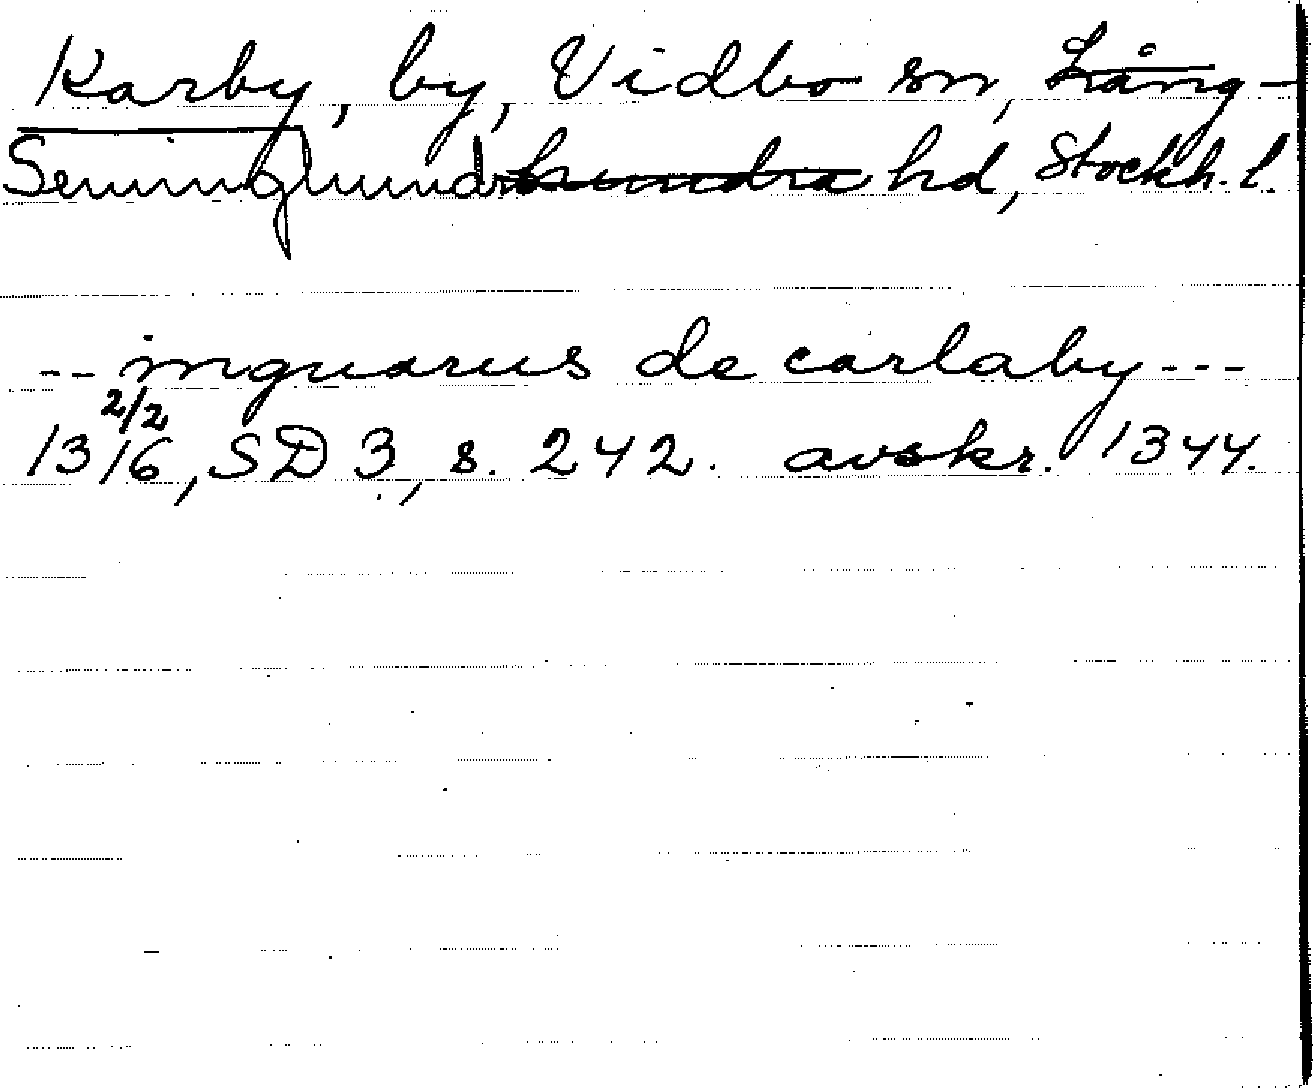 Karby, by, Vidbo sn, Lång-
Seminghundrahundra hd, Stockh. l.
-- inguarus de carlaby ---
13 2/2 16, SD 3, s. 242. avskr. 1344.